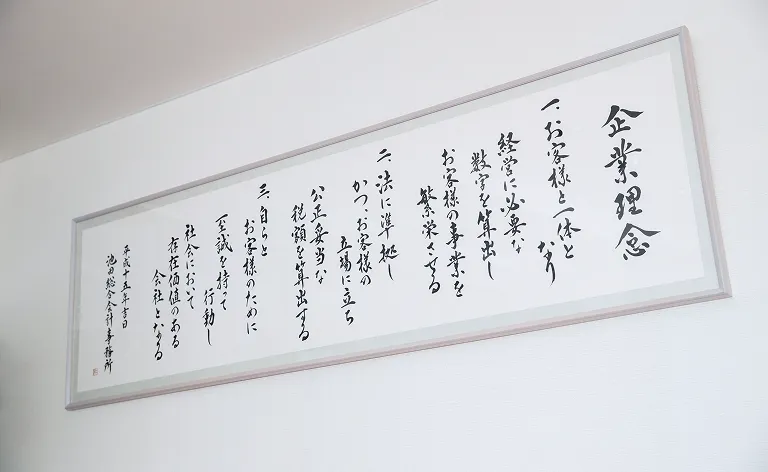 企業理念
一、お客様と一体と
なり
経営に必要な
数字を算出し
お客様の事業を
繁栄させる
二、法に準拠し
かつ、お客様の
立場に立ち
公正妥当な
税額を算出する
三、自らと
お客様のために
至誠を持て
行動し
社会において
存在価値のある
会社となる
平成十五年吉日
池田総合会計事務所